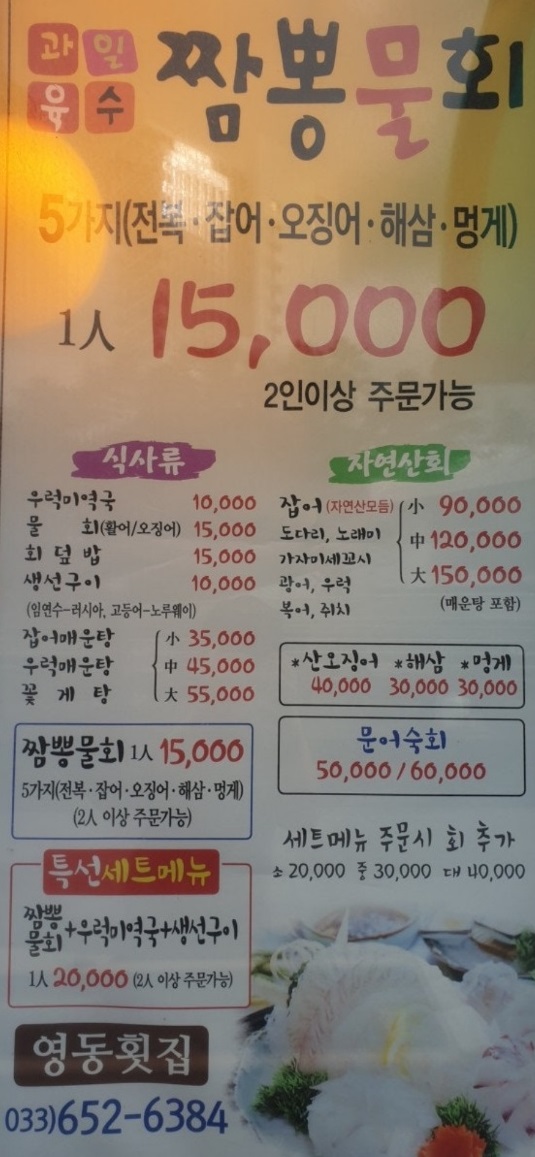 과일
육수
짬뽕물회
5가지(전복·잡어·오징어·해삼·멍게)
1人 15,000
2인이상 주문가능
식사류
우럭미역국 10,000
물 회(활어/오징어) 15,000
회 덮 밥 15,000
생선구이 10,000
(임연수-러시아, 고등어-노르웨이)
잡어매운탕 小 35,000
우럭매운탕 中 45,000
꽃 게 탕 大 55,000
짬뽕물회 1人 15,000
5가지(전복·잡어·오징어·해삼·멍게)
(2人 이상 주문가능)
특선세트메뉴
짬뽕물회+우럭미역국+생선구이
1人 20,000 (2人 이상 주문가능)
영동횟집
033)652-6384
자연산회
잡어(자연산모듬) 小 90,000
도다리, 노래미 中 120,000
가자미세꼬시
광어, 우럭 大 150,000
복어, 쥐치 (매운탕 포함)
*산오징어 *해삼 *멍게
40,000 30,000 30,000
문어숙회
50,000/60,000
세트메뉴 주문시 회 추가
소 20,000 중 30,000 대 40,000